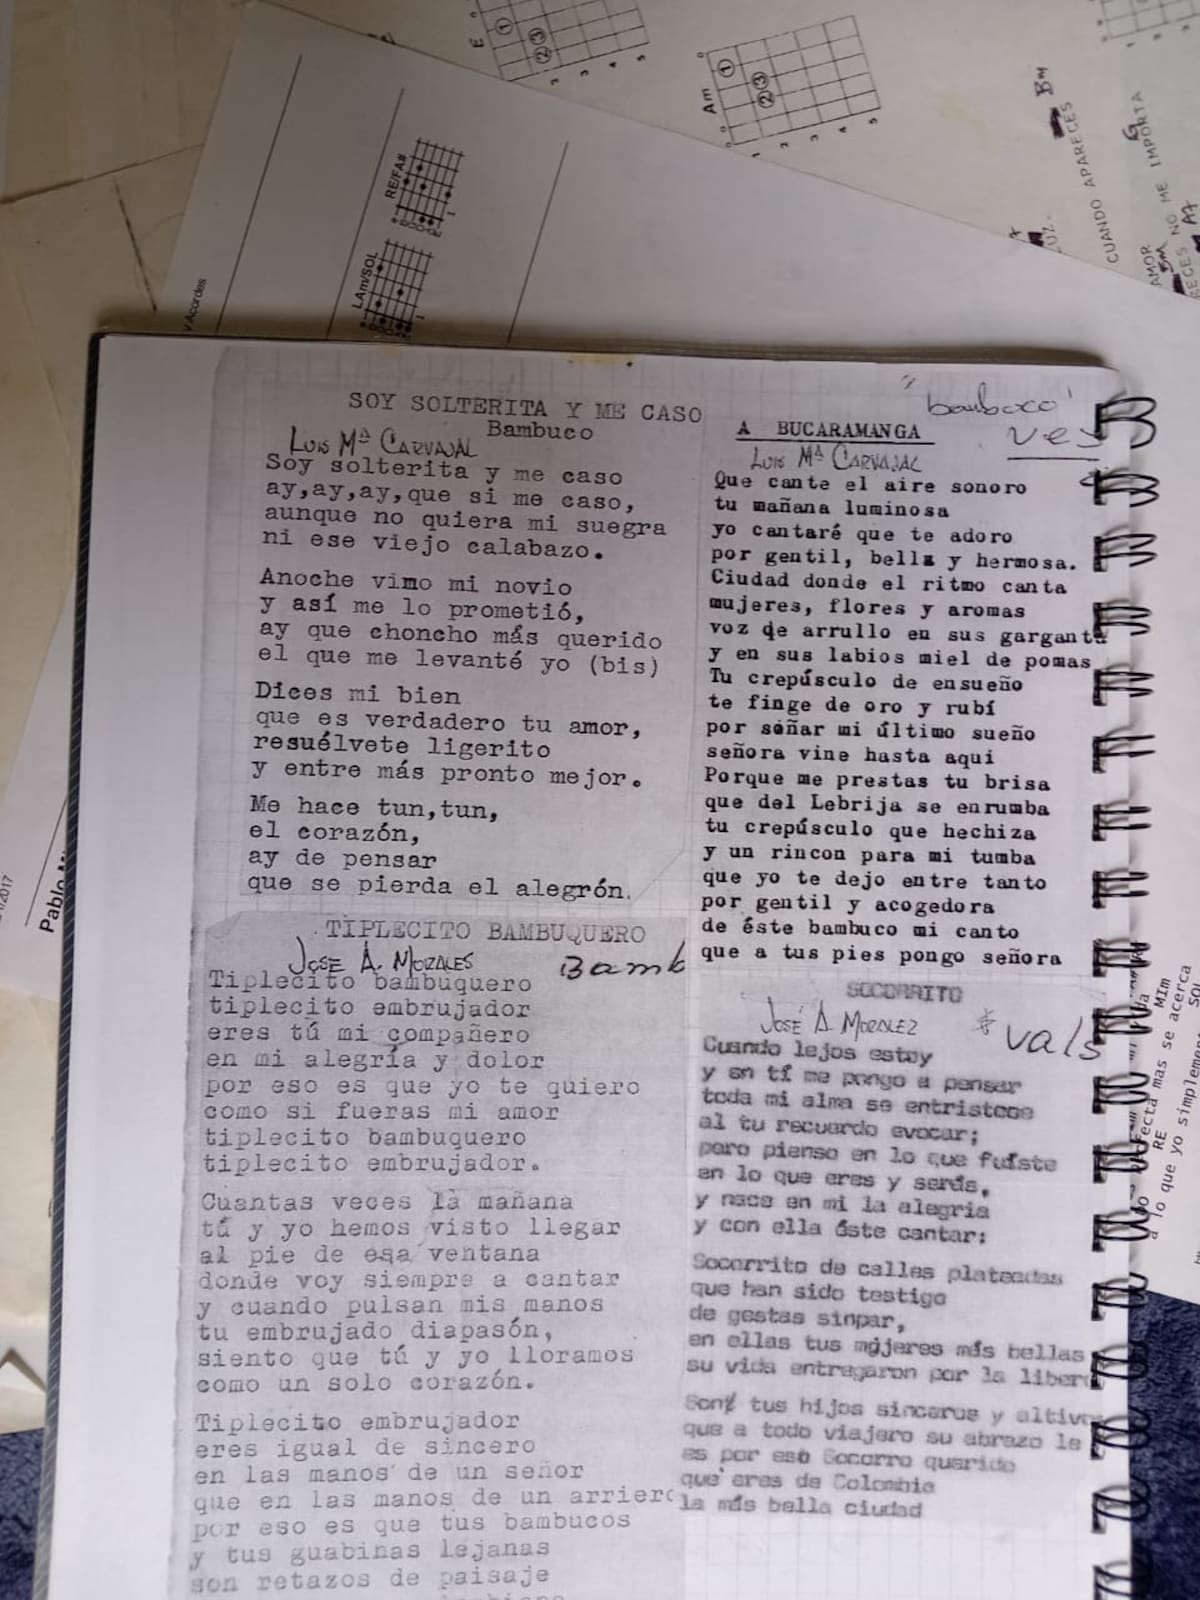 E
1
2 3
2
3
4
5
Am
1
2 3
1
2
3
4
5
Bm
CUANDO APARECES
G
NO ME IMPORTA
AMOR
Bm
A7
RE/FA#
LAm/SOL
y Acordes
/2017
Pablo
SOY SOLTERITA Y ME CASO
Bambuco
LUIS Mª CARVAJAL
Soy solterita y me caso
ay,ay,ay,que si me caso,
aunque no quiera mi suegra
ni ese viejo calabazo.
Anoche vino mi novio
y así me lo prometió,
ay que choncho más querido
el que me levanté yo (bis)
Dices mi bien
que es verdadero tu amor,
resuélvete ligerito
y entre más pronto mejor.
Me hace tun,tun,
el corazón,
ay de pensar
que se pierda el alegrón.
TIPLECITO BAMBUQUERO
JOSE A. MORALES
Bamb
Tiplecito bambuquero
tiplecito embrujador
eres tú mi compañero
en mi alegría y dolor
por eso es que yo te quiero
como si fueras mi amor
tiplecito bambuquero
tiplecito embrujador.
Cuantas veces la mañana
tú y yo hemos visto llegar
al pie de esa ventana
donde voy siempre a cantar
y cuando pulsan mis manos
tu embrujado diapasón,
siento que tú y yo lloramos
como un solo corazón.
Tiplecito embrujador
eres igual de sincero
en las manos de un señor
que en las manos de un arriero
por eso es que tus bambucos
y tus guabinas lejanas
son retazos de paisaje
"bambuco"
A BUCARAMANGA
LUIS Mª CARVAJAL
Que cante el aire sonoro
tu mañana luminosa
yo cantaré que te adoro
por gentil, bella y hermosa.
Ciudad donde el ritmo canta
mujeres, flores y aromas
voz de arrullo en sus garganta
y en sus labios miel de pomas
Tu crepúsculo de ensueño
te finge de oro y rubí
por soñar mi último sueño
señora vine hasta aqui
Porque me prestas tu brisa
que del Lebrija se enrumba
tu crepúsculo que hechiza
y un rincon para mi tumba
que yo te dejo entre tanto
por gentil y acogedora
de éste bambuco mi canto
que a tus pies pongo señora
SOCORRITO
JOSÉ A MORALEZ
vals
Cuando lejos estoy
y en tí me pongo a pensar
toda mi alma se entristece
al tu recuerdo evocar;
pero pienso en lo que fuiste
en lo que eres y serás,
y nace en mi la alegria
y con ella éste cantar:
Socorrito de calles plateadas
que han sido testigo
de gestas sinpar,
en ellas tus mujeres más bellas
su vida entregaron por la liber
Son tus hijos sinceros y altivo
que a todo viajero su abrazo le
es por eso Socorro querido
que eres de Colombia
la más bella ciudad
MIm
RE mas se acerca
lo que yo simplemen